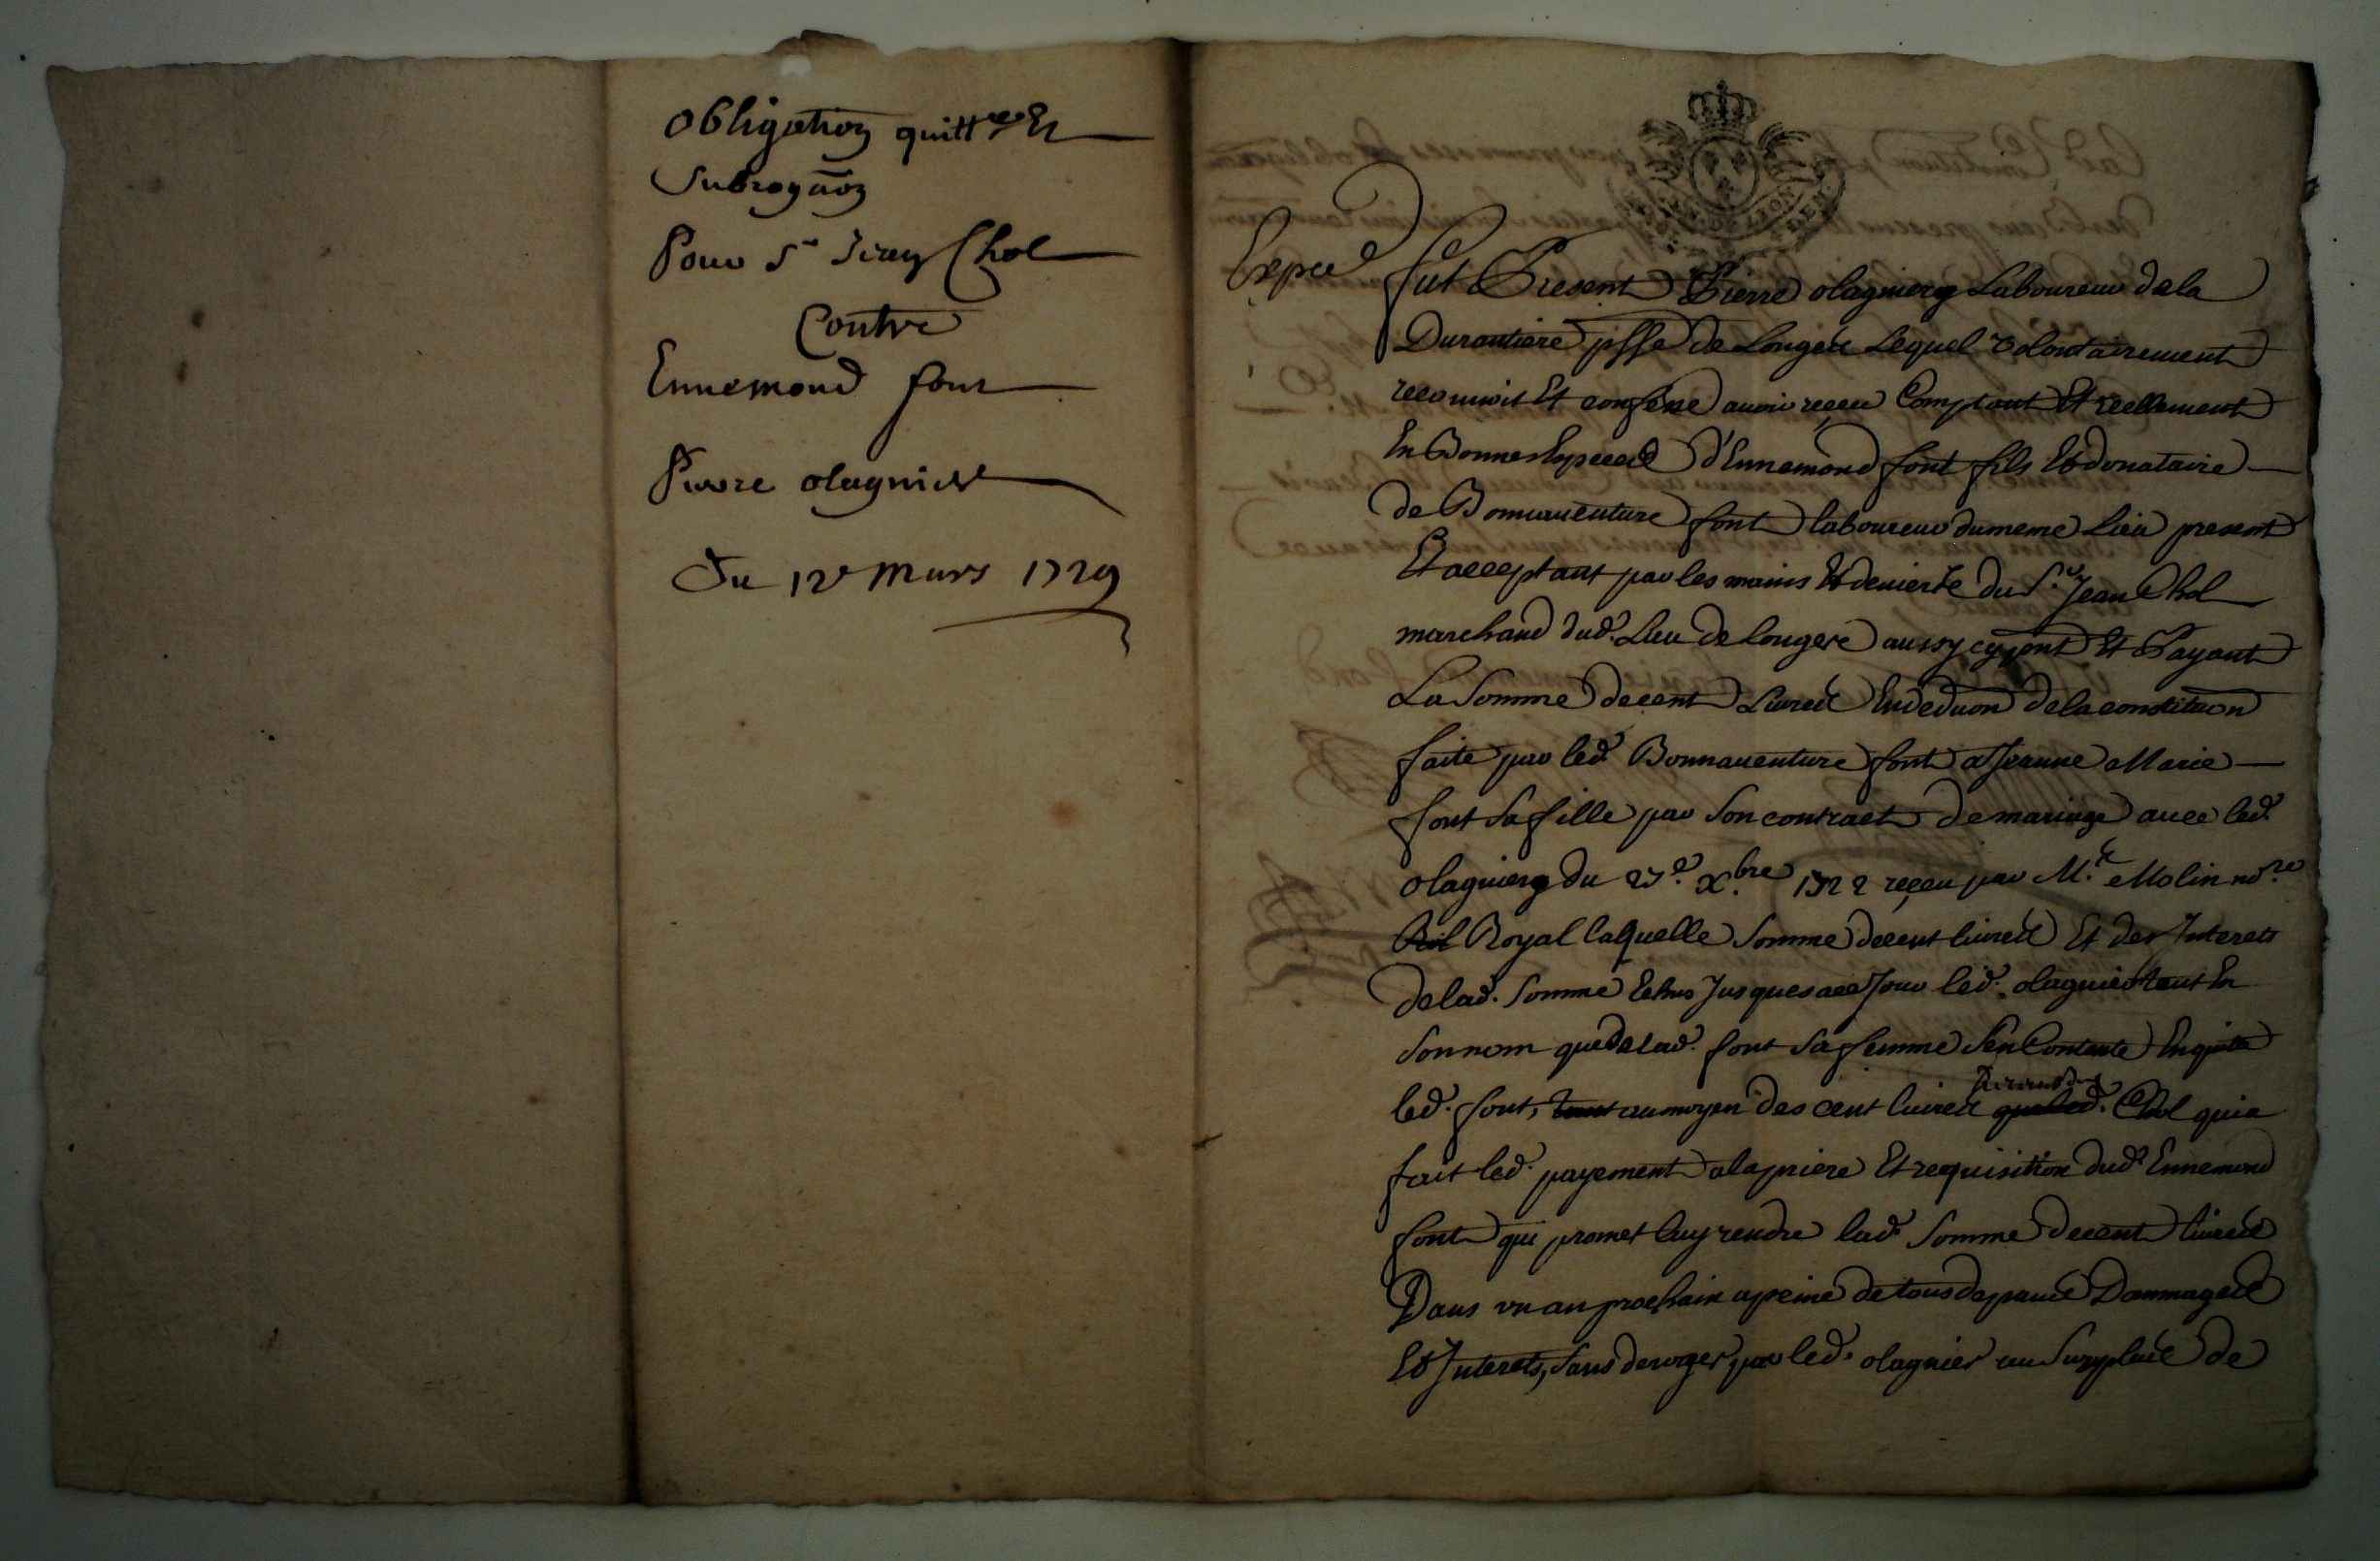 obligation quitt.ce Et
Subrogaon
Pour Sr Jean Chol
Contre
Ennemond font
Pierre olagnier
Du 12e mars 1729
Exped
fut Present Pierre olagnier Laboureur de la
Durantiere psse de Longes Lequel volontairement
reconnoit Et confesse avoir reçeu Comptant Et reellement
En Bonnes Especes d'Ennemond font fils Et donataire
de Bonnaventure font laboureur du meme Lieu present
Et acceptant par les mains Et deniers du Sr. Jean Chol
marchand dud. Lieu de longes aussy cy pnt Et Payant
La Somme de cent Livres En deduon de la constituon
faite par led. Bonnaventure font a Jeanne Marie
font Sa fille par Son contract de mariage avec led.
olagnier du 27e. Xbre 1722 reçeu par Me. Molin nore
Roial Royal laquelle Somme de cent livres Et des Interets
de lad. Somme Echus Jusques a ce Jour led. olagnier tant En
Son nom que de lad. font Sa femme S'en Contente En quitte
led. font, tout au moyen des cent livres que led. Chol qui a
fait led. payement a la priere Et requisition dud. Ennemond
font qui promet luy rendre lad. Somme de cent livres
Dans un an prochain a peine de tous depans Dommages
Et Interets, Sans deroger par led. olagnier au Surplus de